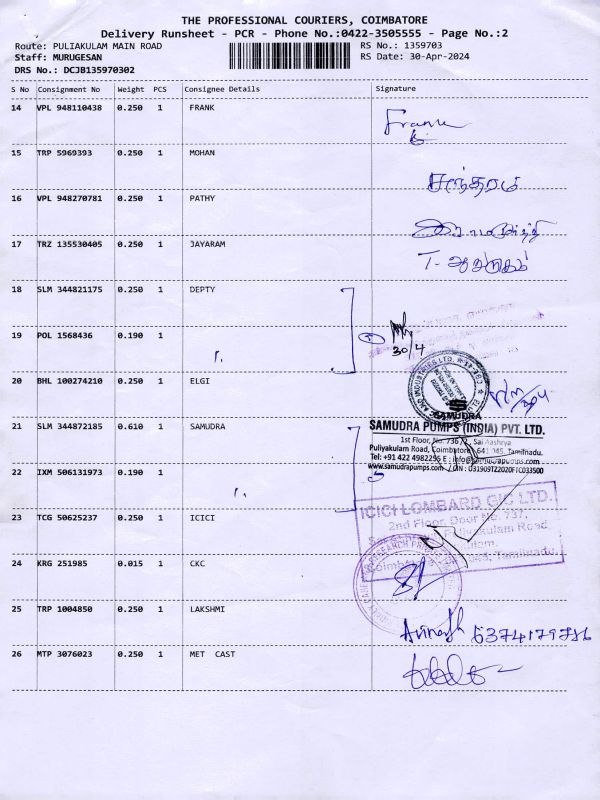 THE PROFESSIONAL COURIERS, COIMBATORE
Delivery Runsheet - PCR - Phone No.:0422-3505555 - Page No.:2
Route: PULIAKULAM MAIN ROAD RS No.: 1359703
Staff: MURUGESAN RS Date: 30-Apr-2024
DRS No.: DCJB135970302
S No Consignment No Weight PCS Consignee Details Signature
14 VPL 948110438 0.250 1 FRANK
Frank
15 TRP 5969393 0.250 1 MOHAN
16 VPL 948270781 0.250 1 PATHY
17 TRZ 135530405 0.250 1 JAYARAM
18 SLM 344821175 0.250 1 DEPTY
19 POL 1568436 0.190 1
30/4
20 BHL 100274210 0.250 1 ELGI
21 SLM 344872185 0.610 1 SAMUDRA
SAMUDRA
SAMUDRA PUMPS (INDIA) PVT. LTD.
1st Floor, No. 736/2, Sai Aashrya
Puliyakulam Road, Coimbatore - 641 045, Tamilnadu.
Tel: +91 422 4982295 E : info@samudrapumps.com
www.samudrapumps.com / CIN : U31909TZ2020FTC033500
22 IXM 506131973 0.190 1
23 TCG 50625237 0.250 1 ICICI
ICICI LOMBARD GIC LTD.
2nd Floor, Door No. 737,
Puliyakulam Road
Coimbatore Tamilnadu.
24 KRG 251985 0.015 1 CKC
25 TRP 1004850 0.250 1 LAKSHMI
Avinash 6374179786
26 MTP 3076023 0.250 1 MET CAST